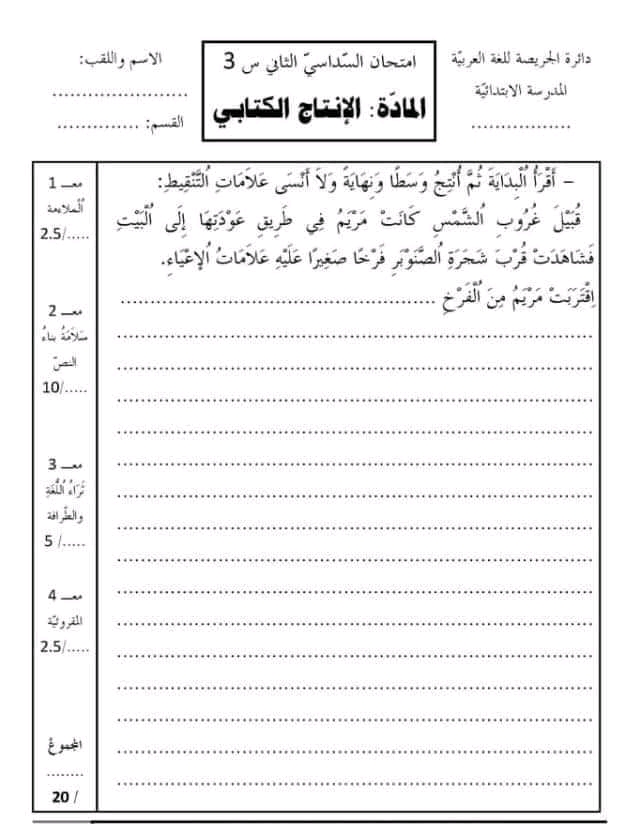 دائرة الجريصة للغة العربيّة
المدرسة الابتدائيّة
................
امتحان السّداسيّ الثاني س 3
المادّة: الإنتاج الكتابي
الاسم واللقب:
......................
القسم: .............
– أَقْرَأُ اُلْبِدَايَةَ ثُمَّ أُنْتِجُ وَسَطًا وَنِهَايَةً وَلاَ أَنْسَى عَلاَمَاتِ اُلتَّنْقِيطِ:
قُبَيْلَ غُرُوبِ اُلشَّمْسِ كَانَتْ مَرْيَمُ فِي طَرِيقِ عَوْدَتِهَا إِلَى اُلْبَيْتِ
فَشَاهَدَتْ قُرْبَ شَجَرَةِ اُلصَّنَوْبَرِ فَرْخًا صَغِيرًا عَلَيْهِ عَلاَمَاتُ اُلإِعْيَاءِ.
اِقْتَرَبَتْ مَرْيَمُ مِنَ اُلْفَرْخِ ..................................................
معـ 1
اُلملاءمة
2.5/.....
معـ 2
سَلاَمَةُ بناءُ
النصّ
10/.....
معـ 3
ثَرَاءُ اُللُّغَةِ
والطّرافة
5 /.....
معـ 4
المقروئيّة
2.5/.....
المجموعُ
........
20 /